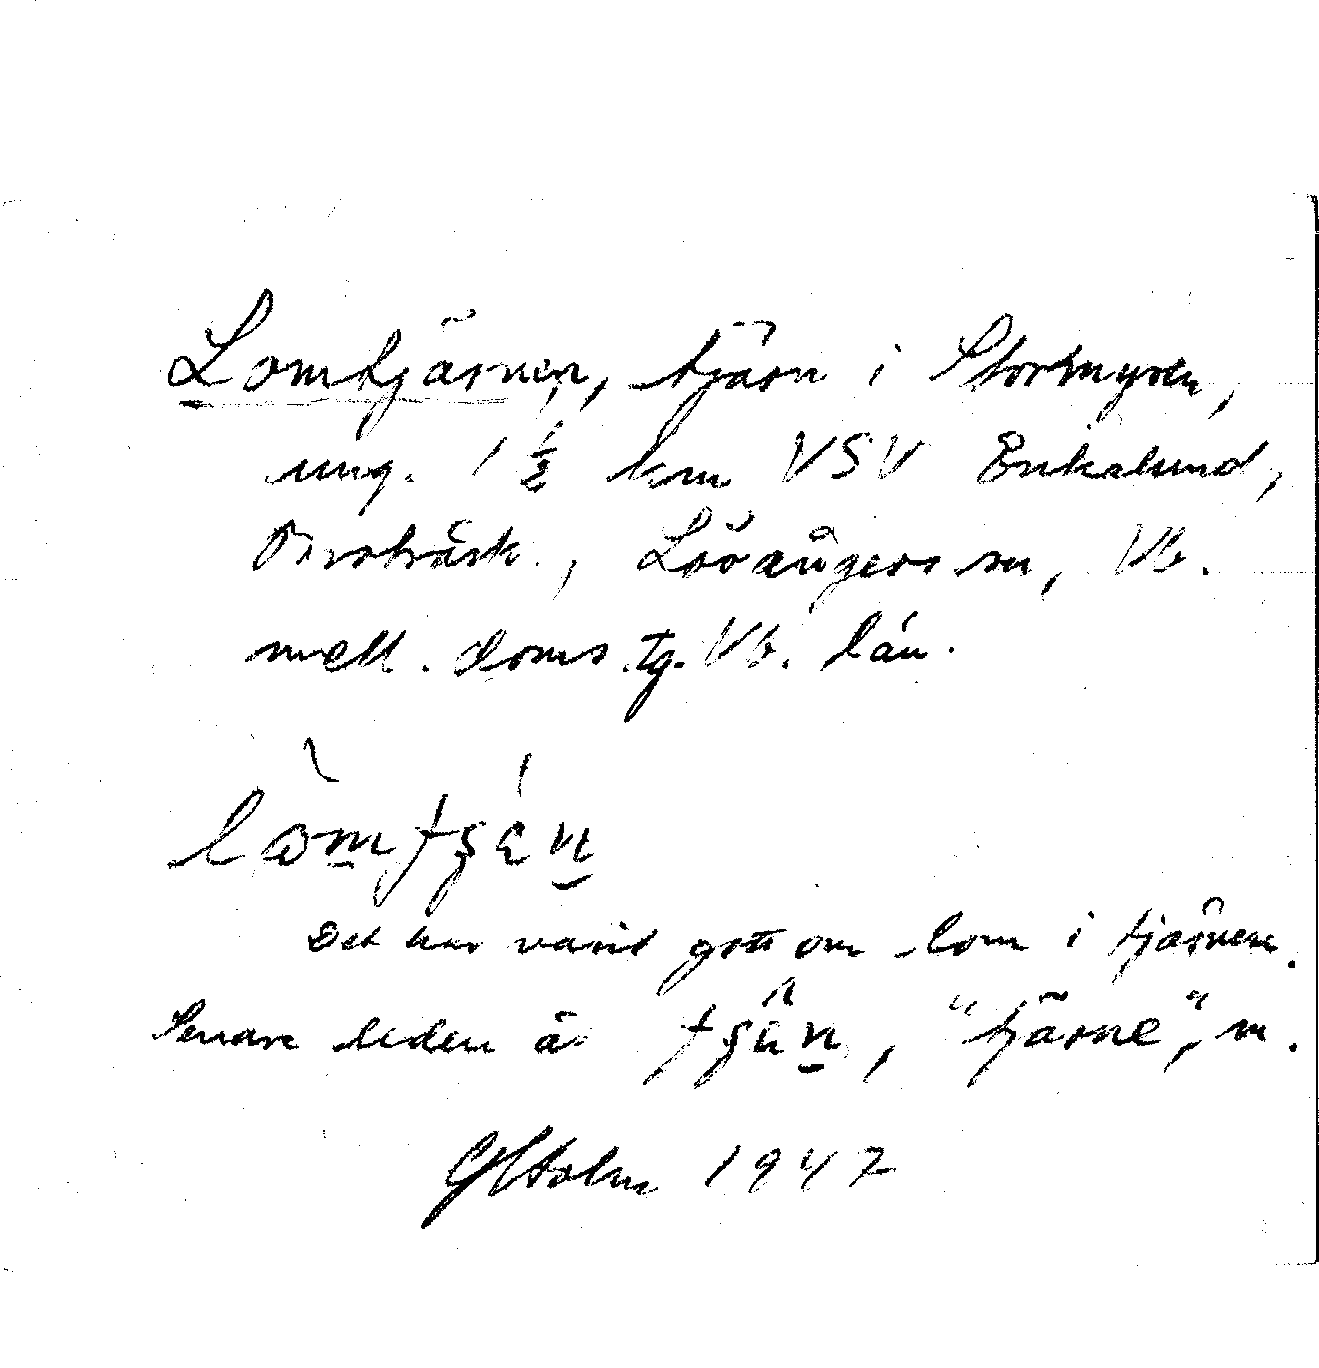 Lomtjärnen, tjärn i Stormyren,
ung. 1 ½ km VSV Enkalund,
Broträsk, Lövångers sn, Vb.
mell. doms.tg. Vb. län.
Det har varit gott om lom i tjärnen.
Senare leden är , "tjärne", m.
G Holm 1947